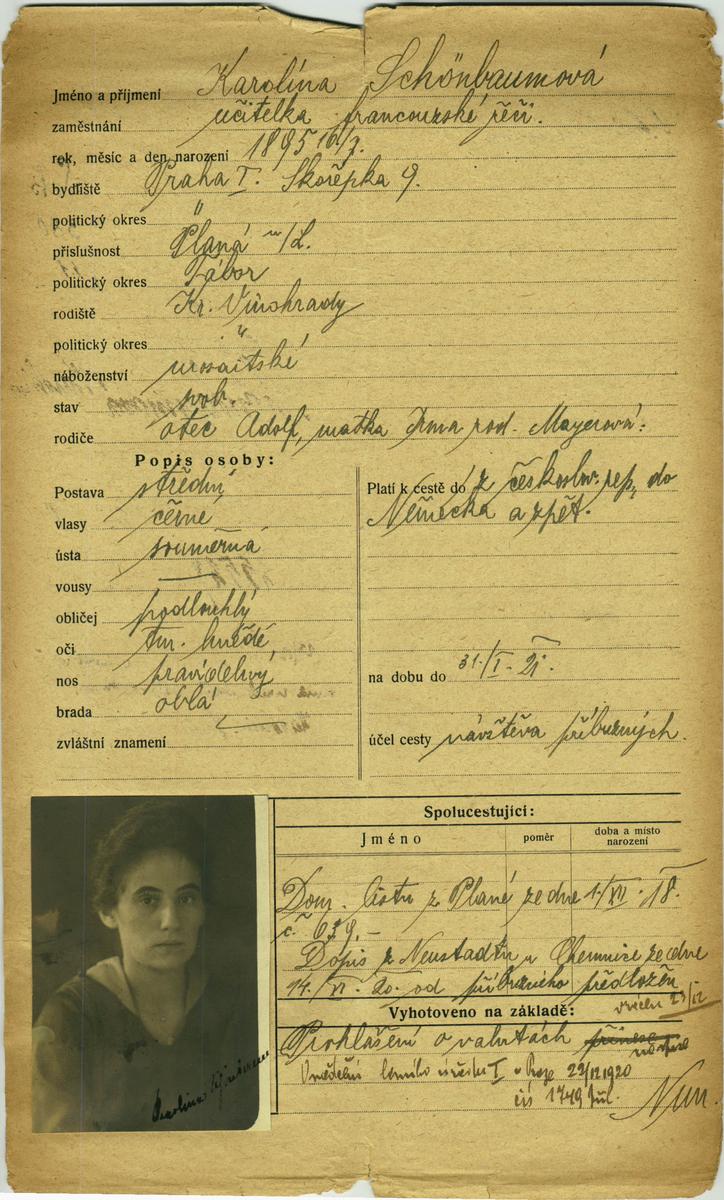 Jméno a příjmení Karolína Schönbaumová
zaměstnání učitelka francouzské řeči.
rok, měsíc a den narození 1895 16/7.
bydliště Praha I. Skořepka 9.
politický okres "
příslušnost Planá n/L.
politický okres Tábor
rodiště Kr. Vinohrady
politický okres "
náboženství mosaitské
stav svob.
rodiče otec Adolf, matka Irma rod. Mayerová.
Popis osoby:
Postava střední
vlasy černé
ústa souměrná
vousy —
obličej podlouhlý
oči tm. hnědé
nos pravidelný
brada oblá
zvláštní znamení —
Platí k cestě do z českoslov. rep. do
Německa a zpět.
na dobu do 31./I. 21.
účel cesty návštěva příbuzných.
Spolucestující:
Jméno poměr doba a místo narození
Dom. listu z Plané ze dne 1./VII. 18.
č. 639.-
Dopis z Neustadtu u Chemnice ze dne
14./VI. 20. od příbuzného předložen
Vyhotoveno na základě:
23/12
Prohlášení o valutách přinese
I v Praze 22/12 1920
čís 1749